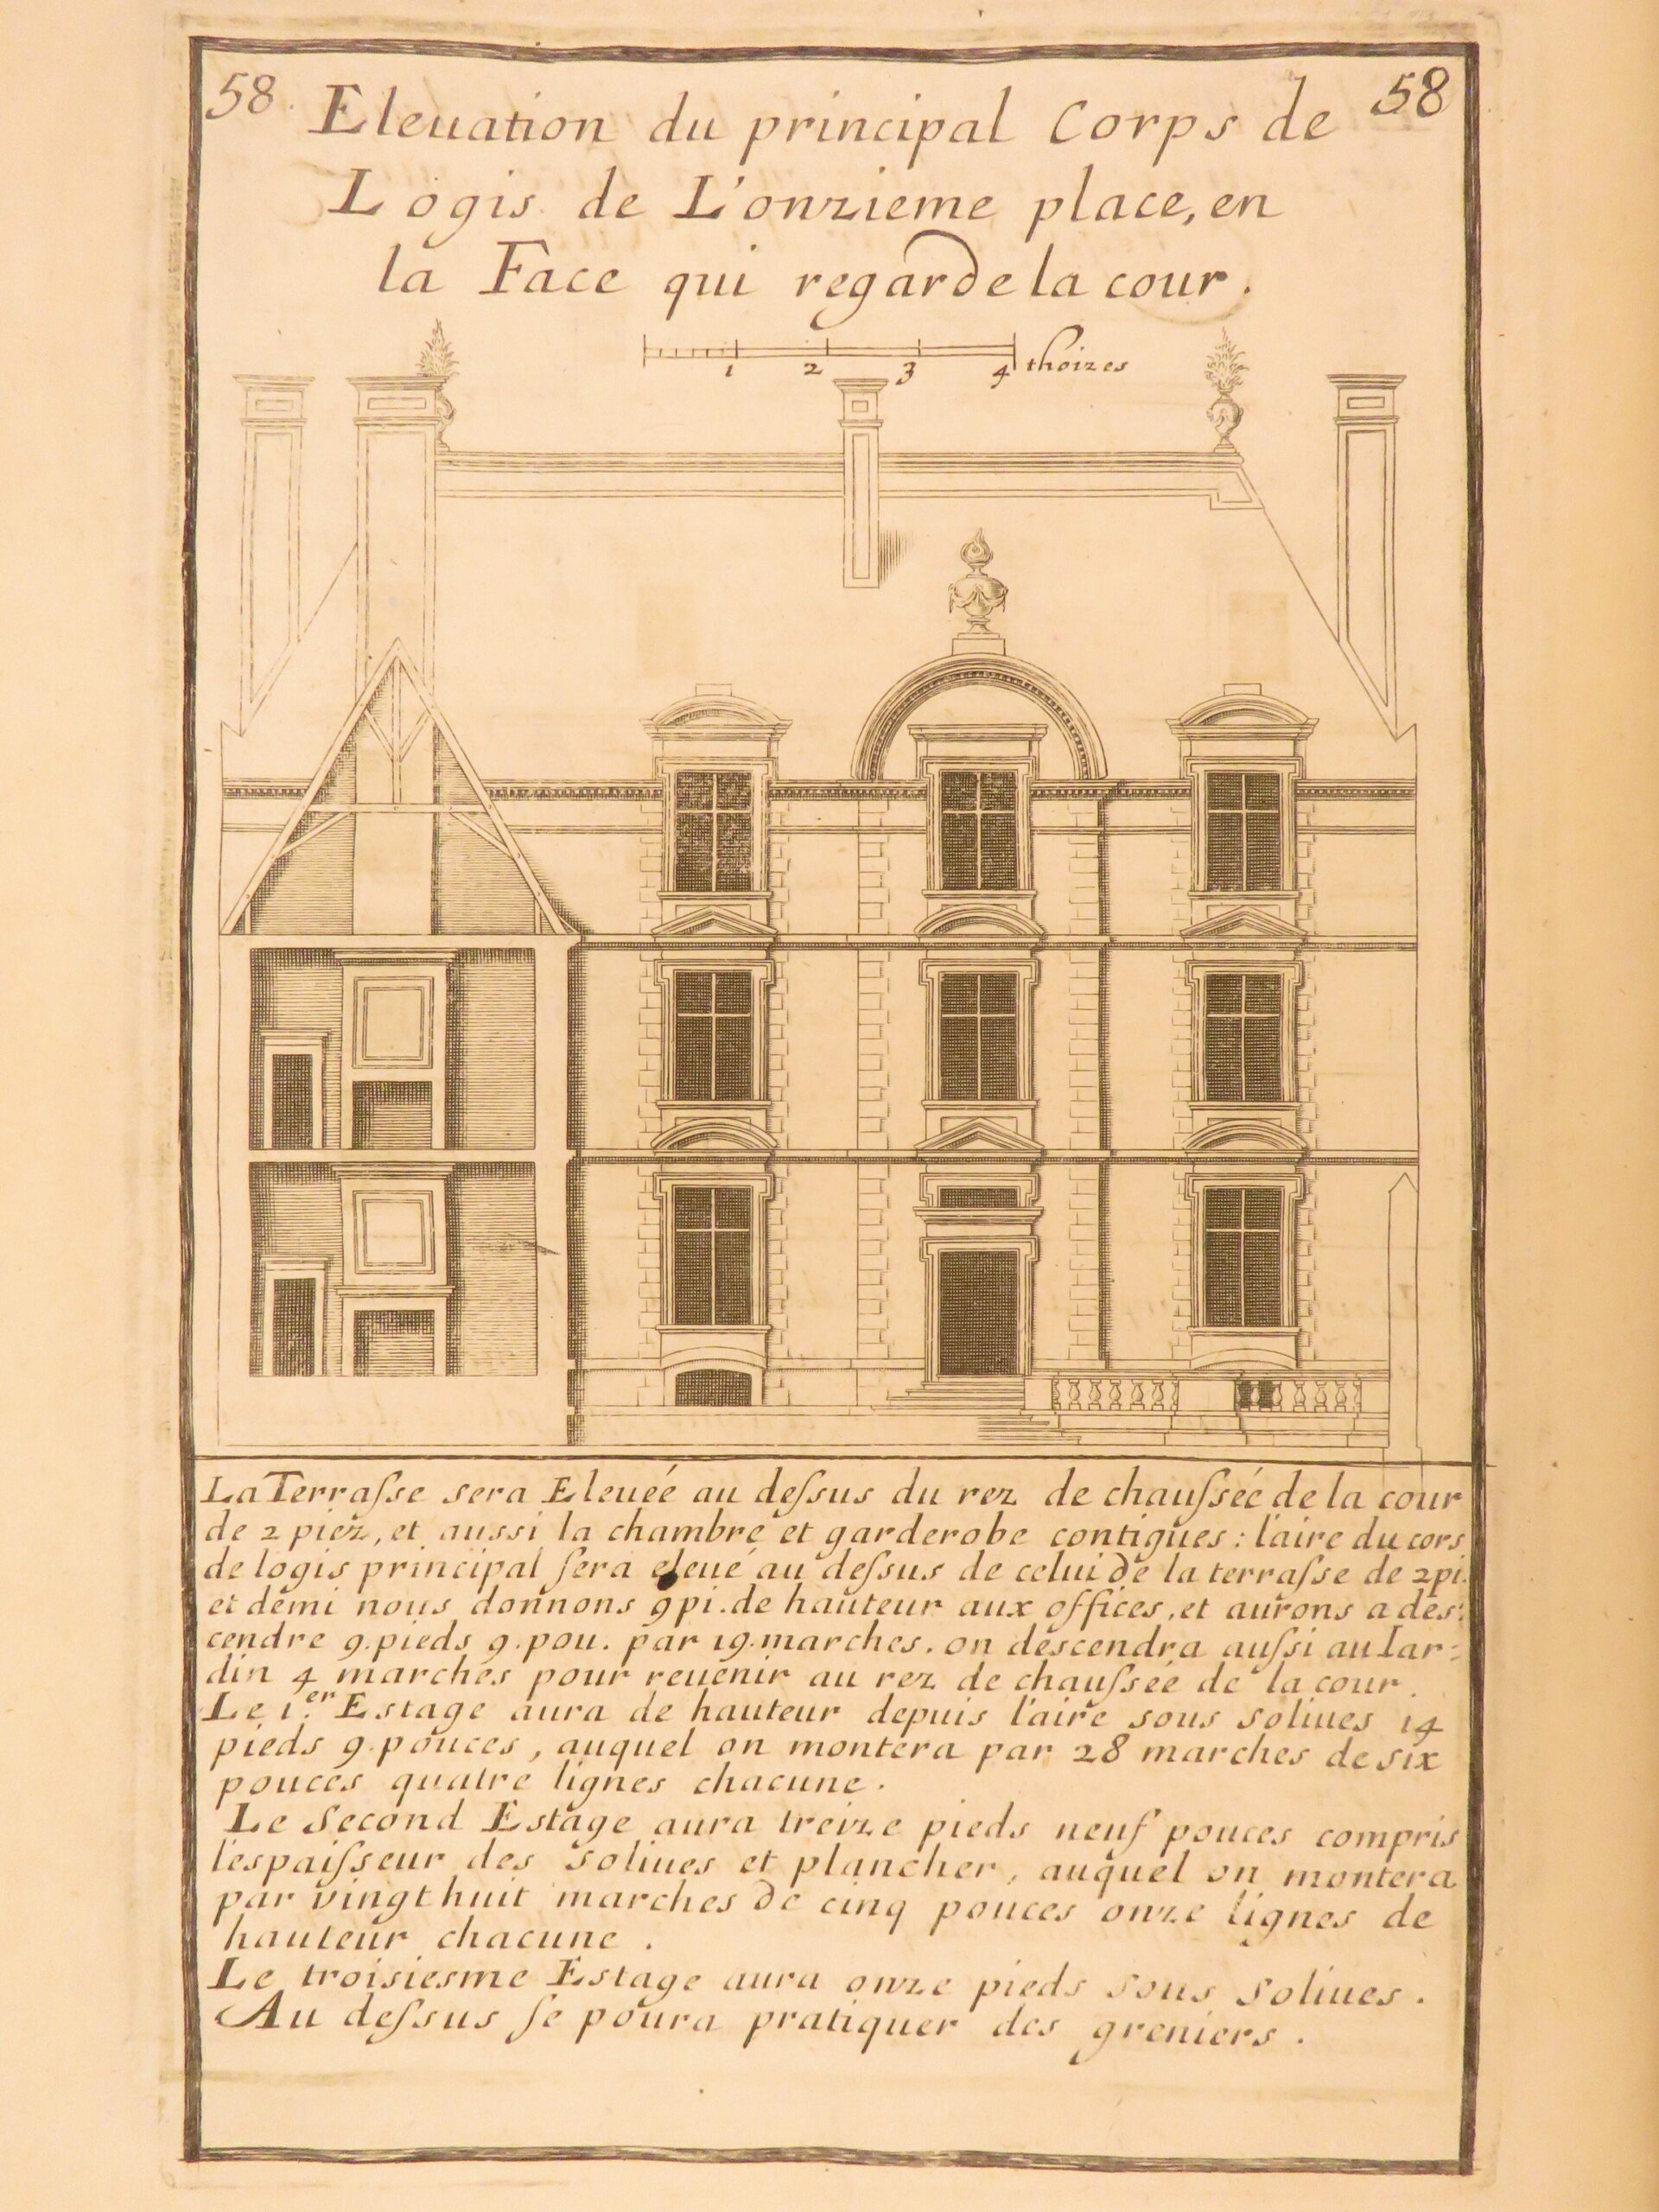 58. Eleuation du principal Corps de 58
Logis de L'onzieme place, en
la Face qui regarde la cour.
1 2 3 4 thoizes
La Terraſse sera Eleuéé au deſsus du rez de chauſséé de la cour
de 2 piez, et aussi la chambre et garderobe contigues : l'aire du cors
de logis principal ſera eleué au deſsus de celui de la terraſse de 2 pi.
et demi nous donnons 9 pi. de hauteur aux offices, et aurons a des:
cendre 9. pieds 9. pou. par 19. marches. on descendra auſsi au Iar:
din 4 marches pour reuenir au rez de chauſsée de la cour.
Le 1.er Estage aura de hauteur depuis l'aire sous soliues 14
pieds 9. pouces, auquel on montera par 28 marches de six
pouces quatre lignes chacune.
Le Second Estage aura treize pieds neuf pouces compris
l'espaiſseur des soliues et plancher, auquel on montera
par vingt huit marches de cinq pouces onze lignes de
hauteur chacune.
Le troisiesme Estage aura onze pieds sous soliues.
Au deſsus ſe poura pratiquer des greniers.